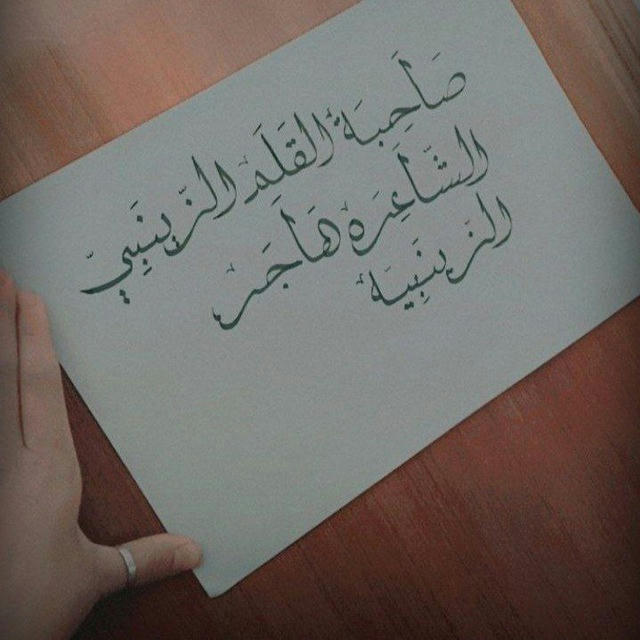 صَاحِبَةُ القَلَمِ الزّينَبِيّ
الشّاعِرَه هَاجَر
الزَينَبِيَه